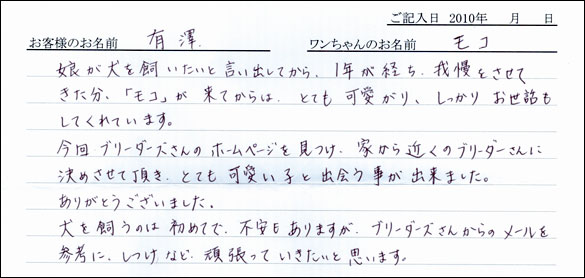 ご記入日 2010年　月　日
お客様のお名前　有澤　ワンちゃんのお名前　モコ
娘が犬を飼いたいと言い出してから、1年が経ち、我慢をさせて
きた分、「モコ」が来てからは、とても可愛がり、しっかりお世話も
してくれています。
今回ブリーダーズさんのホームページを見つけ、家から近くのブリーダーさんに
決めさせて頂き、とても可愛い子と出会う事が出来ました。
ありがとうございました。
犬を飼うのは初めてで、不安もありますが、ブリーダーズさんからのメールを
参考に、しつけなど、頑張っていきたいと思います。